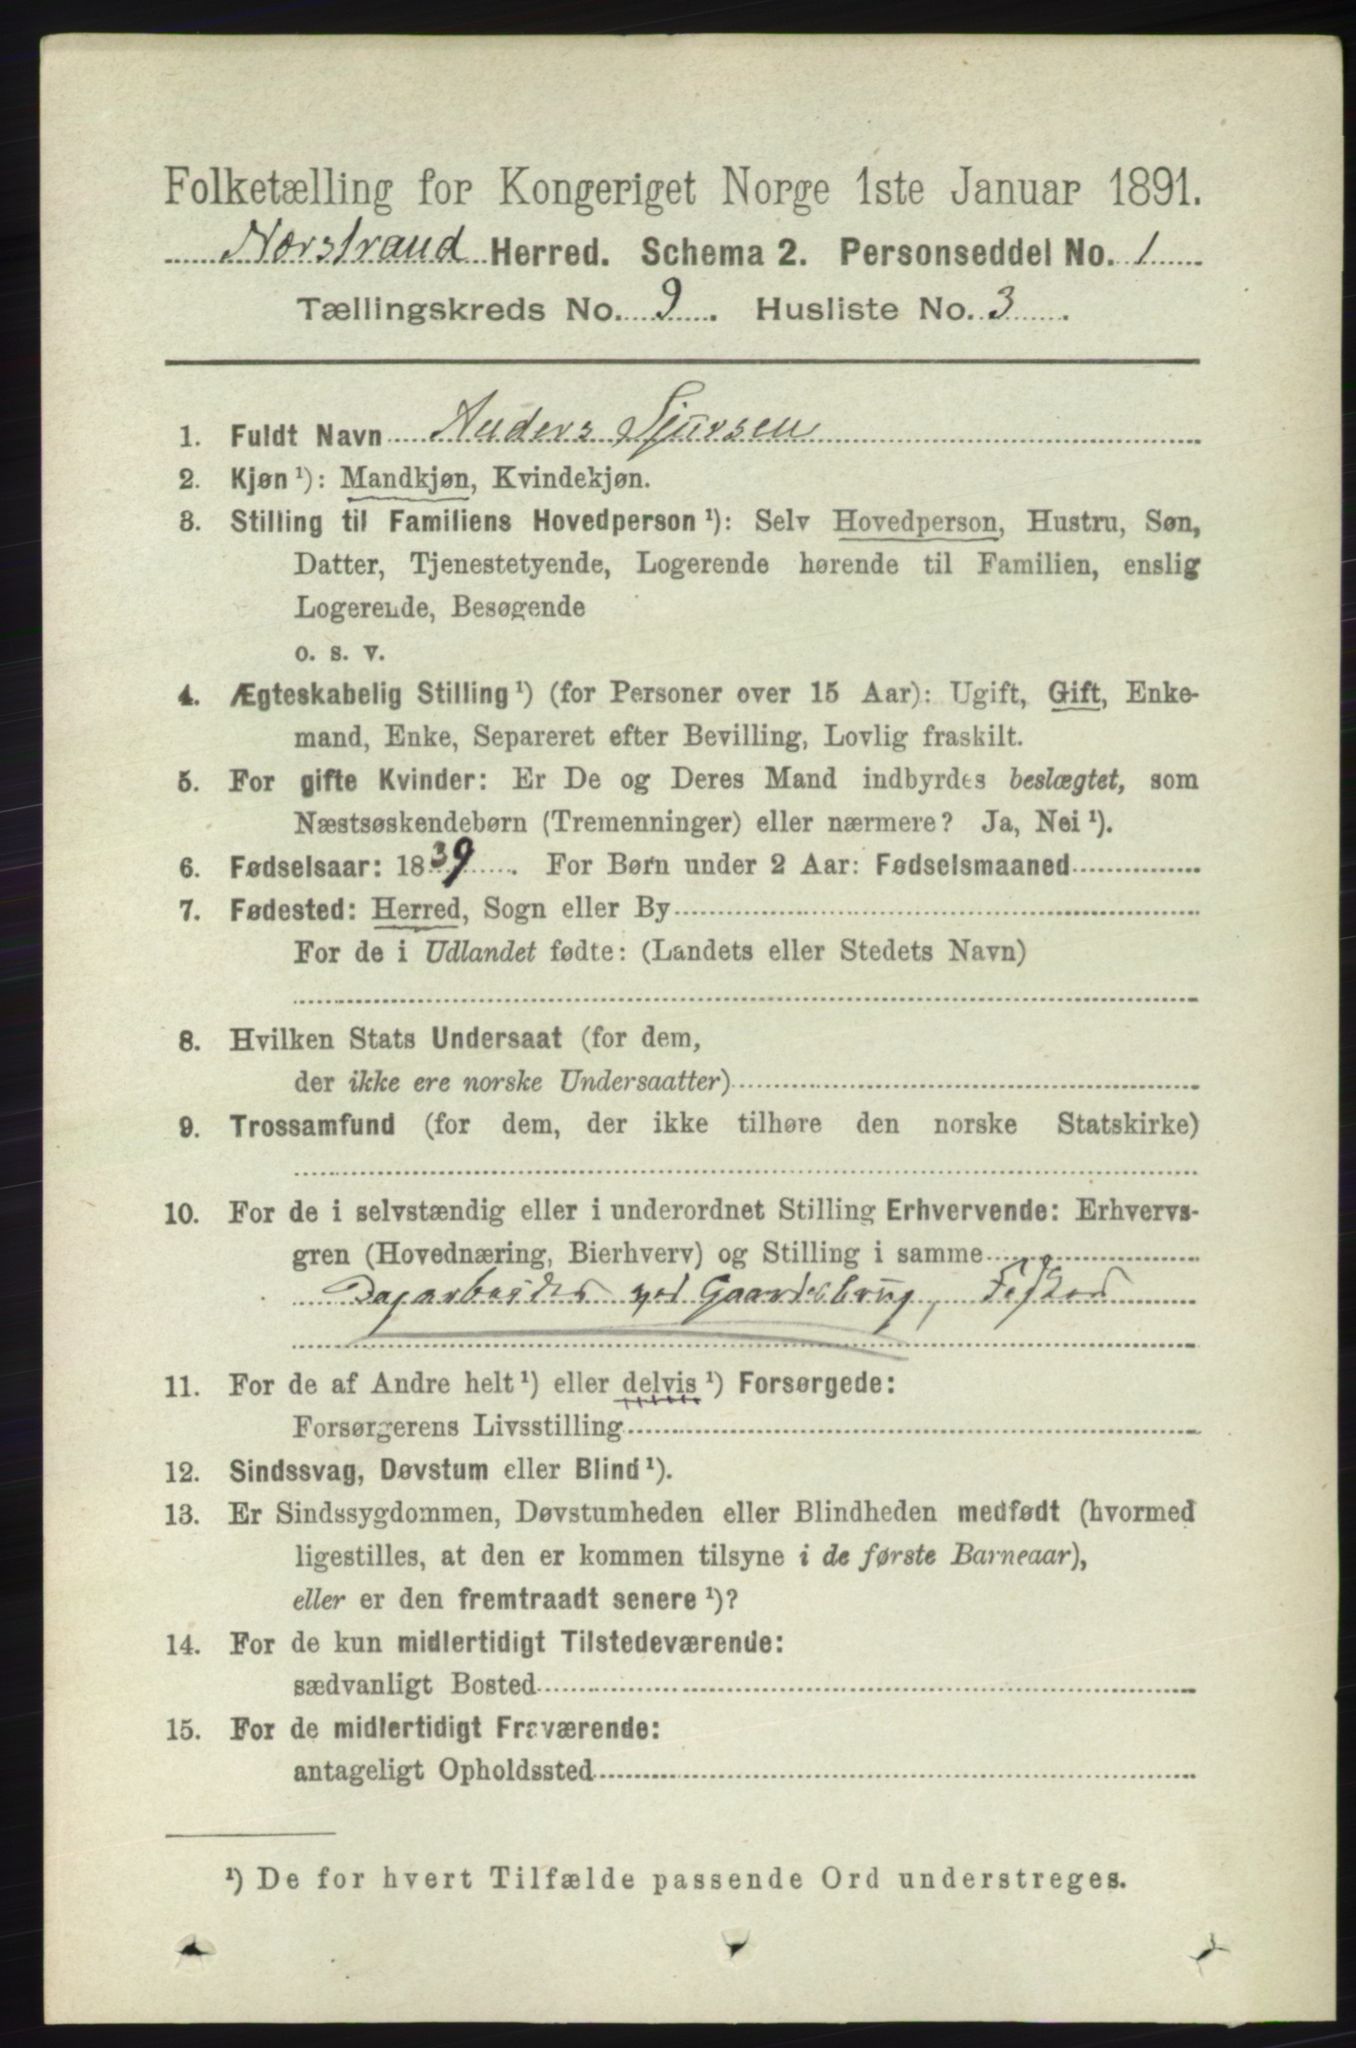 Folketælling for Kongeriget Norge 1ste Januar 1891.
Nærstrand Herred. Schema 2. Personseddel No. 1
Tællingskreds No. 9. Husliste No. 3.
1. Fuldt Navn Anders Sjursen
2. Kjøn ¹): Mandkjøn, Kvindekjøn.
3. Stilling til Familiens Hovedperson ¹): Selv Hovedperson, Hustru, Søn,
Datter, Tjenestetyende, Logerende hørende til Familien, enslig
Logerende, Besøgende
o. s. v.
4. Ægteskabelig Stilling ¹) (for Personer over 15 Aar): Ugift, Gift, Enke-
mand, Enke, Separeret efter Bevilling, Lovlig fraskilt.
5. For gifte Kvinder: Er De og Deres Mand indbyrdes beslægtet, som
Næstsøskendebørn (Tremenninger) eller nærmere? Ja, Nei ¹).
6. Fødselsaar: 1839. For Børn under 2 Aar: Fødselsmaaned
7. Fødested: Herred, Sogn eller By
For de i Udlandet fødte: (Landets eller Stedets Navn)
8. Hvilken Stats Undersaat (for dem,
der ikke ere norske Undersaatter)
9. Trossamfund (for dem, der ikke tilhøre den norske Statskirke)
10. For de i selvstændig eller i underordnet Stilling Erhvervende: Erhvervs-
gren (Hovednæring, Bierhverv) og Stilling i samme
Dagarbeider ved Gaardsbrug, Fisker
11. For de af Andre helt ¹) eller delvis ¹) Forsørgede:
Forsørgerens Livsstilling
12. Sindssvag, Døvstum eller Blind ¹).
13. Er Sindssygdommen, Døvstumheden eller Blindheden medfødt (hvormed
ligestilles, at den er kommen tilsyne i de første Barneaar),
eller er den fremtraadt senere ¹)?
14. For de kun midlertidigt Tilstedeværende:
sædvanligt Bosted
15. For de midlertidigt Fraværende:
antageligt Opholdssted
¹) De for hvert Tilfælde passende Ord understreges.